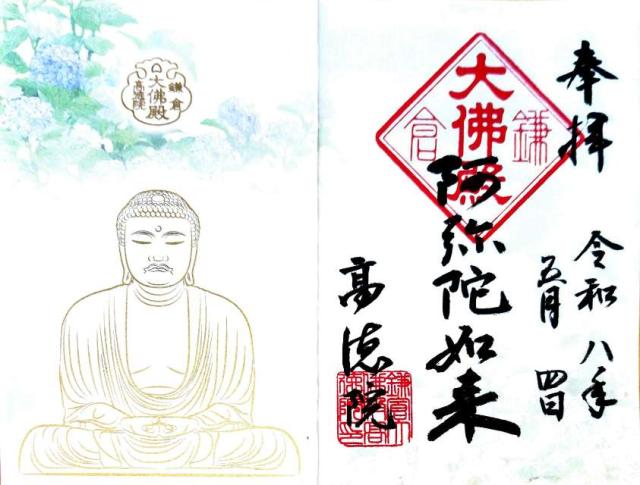 奉拝
令和八年
五月四日
大佛殿
鎌倉
阿弥陀如来
高徳院
鎌倉
大佛殿
高徳院